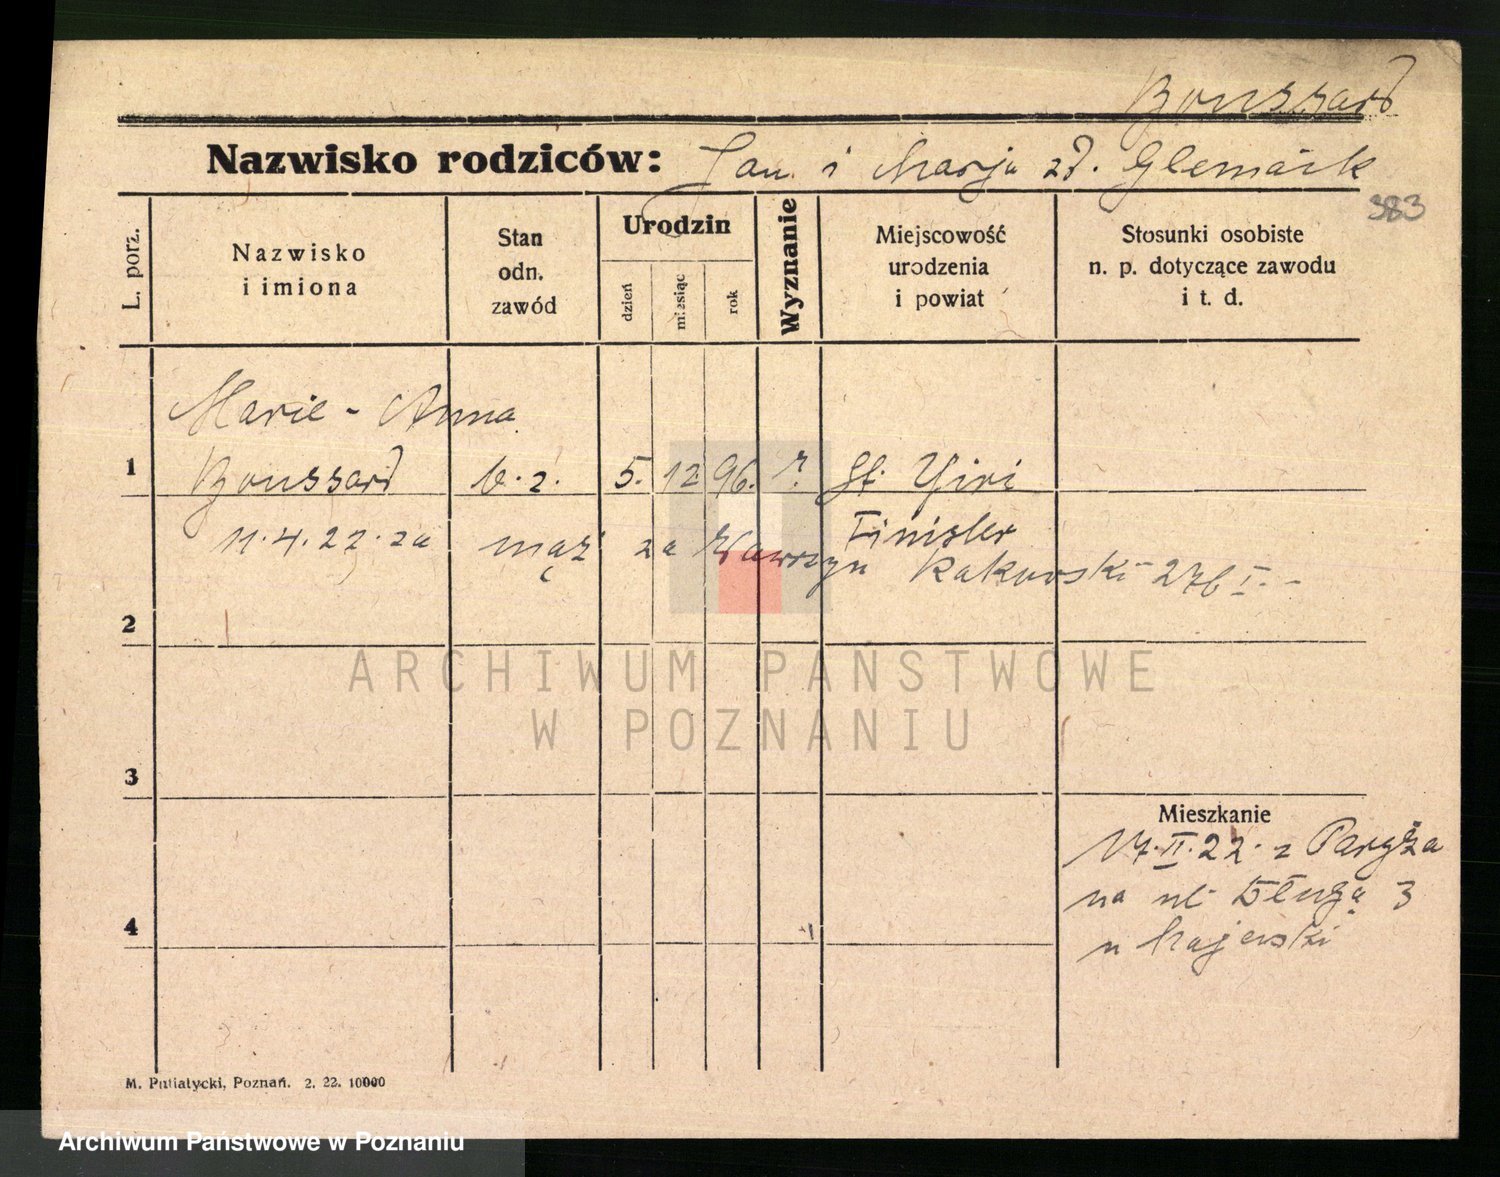 Boussard
Nazwisko rodziców: Jan i Marja zd. Glemark
383
L. porz.
Nazwisko
i imiona
Stan
odn.
zawód
Urodzin
dzień
miesiąc
rok
Wyznanie
Miejscowość
urodzenia
i powiat
Stosunki osobiste
n. p. dotyczące zawodu
i t. d.
Marie - Anna
1 Boussard b. z. 5. 12. 96. r. St. Yiri
Finister
11.4.22. za mąż za Wawrzyn Rakowski 276 I. -
2
ARCHIWUM PAŃSTWOWE
W POZNANIU
3
Mieszkanie
17.II.22. z Paryża
na ul Długą 3
u Majewski
4
M. Putiatycki, Poznań. 2. 22. 10000
Archiwum Państwowe w Poznaniu